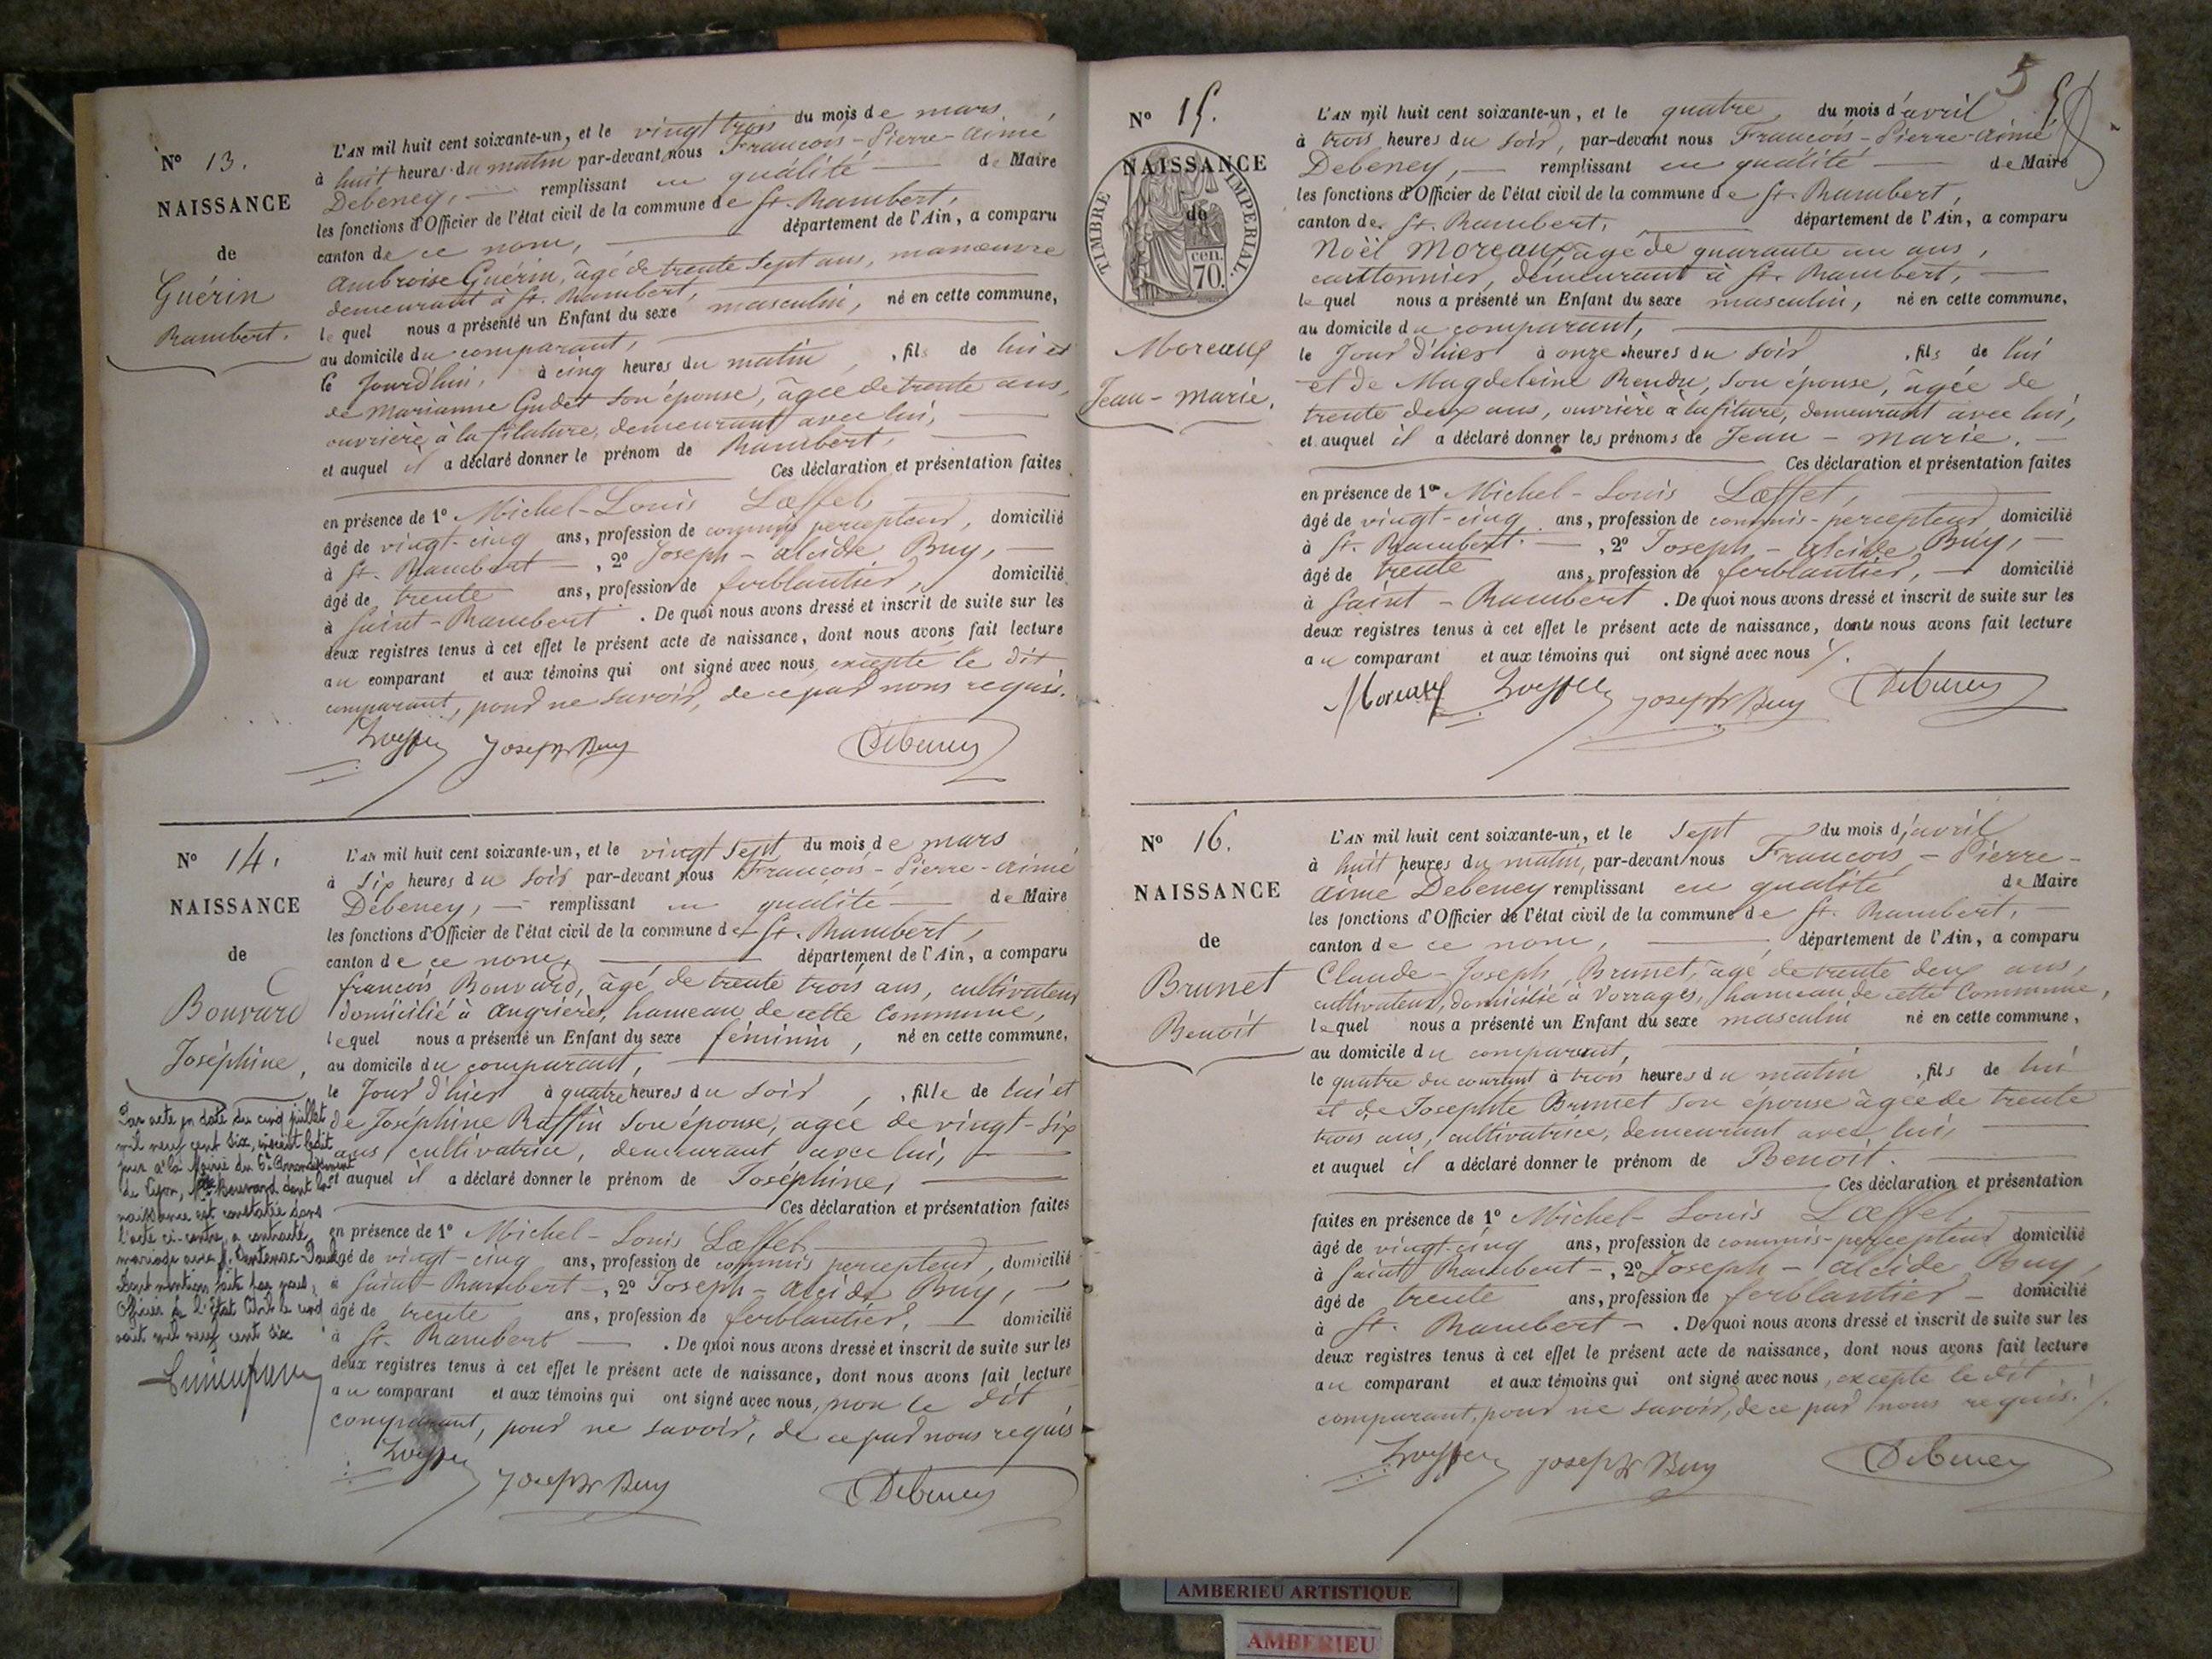 Nº 13.
NAISSANCE
de
Guérin
Rambert.
L'AN mil huit cent soixante-un, et le vingt trois du mois de mars,
à huit heures du matin par-devant nous François-Pierre-Aimé
Debeney, remplissant en qualité de Maire
les fonctions d'Officier de l'état civil de la commune de St. Rambert,
canton de ce nom, département de l'Ain, a comparu
Ambroise Guérin, âgé de trente sept ans, manœuvre
demeurant à St. Rambert,
lequel nous a présenté un Enfant du sexe masculin, né en cette commune,
au domicile du comparant,
le Jourd'hui, à cinq heures du matin, fils de lui et
de Marianne Gudet son épouse, âgée de trente ans,
ouvrière à la filature, demeurant avec lui,
et auquel il a déclaré donner le prénom de Rambert,
Ces déclaration et présentation faites
en présence de 1º Michel-Louis Lœffel,
âgé de vingt-cinq ans, profession de commis percepteur, domicilié
à St. Rambert, 2º Joseph-Alcide Buy,
âgé de trente ans, profession de ferblantier, domicilié
à Saint-Rambert. De quoi nous avons dressé et inscrit de suite sur les
deux registres tenus à cet effet le présent acte de naissance, dont nous avons fait lecture
au comparant et aux témoins qui ont signé avec nous, excepté le dit
comparant, pour ne savoir, de ce par nous requis.
Joseph Buy Debeney
Nº 14.
NAISSANCE
de
Bouvard
Joséphine,
L'AN mil huit cent soixante-un, et le vingt sept du mois de mars
à six heures du soir par-devant nous François-Pierre-Aimé
Debeney, remplissant en qualité de Maire
les fonctions d'Officier de l'état civil de la commune de St. Rambert,
canton de ce nom, département de l'Ain, a comparu
françois Bouvard, âgé de trente trois ans, cultivateur
domicilié à Angrières, hameau de cette Commune,
lequel nous a présenté un Enfant du sexe féminin, né en cette commune,
au domicile du comparant,
le Jour d'hier à quatre heures du soir, fille de lui et
de Joséphine Raffin son épouse, âgée de vingt-six
ans, cultivatrice, demeurant avec lui,
et auquel il a déclaré donner le prénom de Joséphine,
Ces déclaration et présentation faites
en présence de 1º Michel-Louis Lœffel,
âgé de vingt-cinq ans, profession de commis percepteur, domicilié
à Saint-Rambert, 2º Joseph-Alcide Buy,
âgé de trente ans, profession de ferblantier, domicilié
à St. Rambert. De quoi nous avons dressé et inscrit de suite sur les
deux registres tenus à cet effet le présent acte de naissance, dont nous avons fait lecture
au comparant et aux témoins qui ont signé avec nous, non le dit
comparant, pour ne savoir, de ce par nous requis
Joseph Buy Debeney
Par acte en date du cinq juillet
mil neuf cent six, inscrit ledit
jour à la Mairie du 6e Arrondissement
de Lyon, Mlle Bouvard dont la
naissance est constatée dans
l'acte ci-contre, a contracté
mariage avec M.
Dont mention faite par nous,
Officier de l'Etat Civil le
août mil neuf cent six
5
Nº 15.
NAISSANCE
de
TIMBRE IMPERIAL
cen.
70.
Moreaux
Jean-Marie.
L'AN mil huit cent soixante-un, et le quatre du mois d'avril
à trois heures du soir, par-devant nous François-Pierre-Aimé
Debeney, remplissant en qualité de Maire
les fonctions d'Officier de l'état civil de la commune de St. Rambert,
canton de St. Rambert, département de l'Ain, a comparu
Noël Moreaux, âgé de quarante un ans,
cantonnier, demeurant à St. Rambert,
lequel nous a présenté un Enfant du sexe masculin, né en cette commune,
au domicile du comparant,
le Jour d'hier à onze heures du soir, fils de lui
et de Magdeleine Rendu, son épouse, âgée de
trente deux ans, ouvrière à la filture, demeurant avec lui,
et auquel il a déclaré donner les prénoms de Jean-Marie.
Ces déclaration et présentation faites
en présence de 1º Michel-Louis Lœffel,
âgé de vingt-cinq ans, profession de commis-percepteur, domicilié
à St. Rambert, 2º Joseph-Alcide Buy,
âgé de trente ans, profession de ferblantier, domicilié
à Saint-Rambert. De quoi nous avons dressé et inscrit de suite sur les
deux registres tenus à cet effet le présent acte de naissance, dont nous avons fait lecture
au comparant et aux témoins qui ont signé avec nous
Moreaux Joseph Buy Debeney
Nº 16.
NAISSANCE
de
Brunet
Benoît
L'AN mil huit cent soixante-un, et le sept du mois d'avril
à huit heures du matin, par-devant nous François-Pierre-
Aimé Debeney remplissant en qualité de Maire
les fonctions d'Officier de l'état civil de la commune de St. Rambert,
canton de ce nom, département de l'Ain, a comparu
Claude-Joseph Brunet, âgé de trente deux ans,
cultivateur, domicilié à Vorrages, hameau de cette Commune,
lequel nous a présenté un Enfant du sexe masculin né en cette commune,
au domicile du comparant,
le quatre du courant à trois heures du matin, fils de lui
et de Josephte Brunet son épouse âgée de trente
trois ans, cultivatrice, demeurant avec lui,
et auquel il a déclaré donner le prénom de Benoît.
Ces déclaration et présentation
faites en présence de 1º Michel-Louis Lœffel
âgé de vingt-cinq ans, profession de commis-percepteur domicilié
à Saint Rambert, 2º Joseph-Alcide Buy,
âgé de trente ans, profession de ferblantier domicilié
à St. Rambert. De quoi nous avons dressé et inscrit de suite sur les
deux registres tenus à cet effet le présent acte de naissance, dont nous avons fait lecture
au comparant et aux témoins qui ont signé avec nous, excepté le dit
comparant, pour ne savoir, de ce par nous requis.
Joseph Buy Debeney
AMBERIEU ARTISTIQUE
AMBERIEU